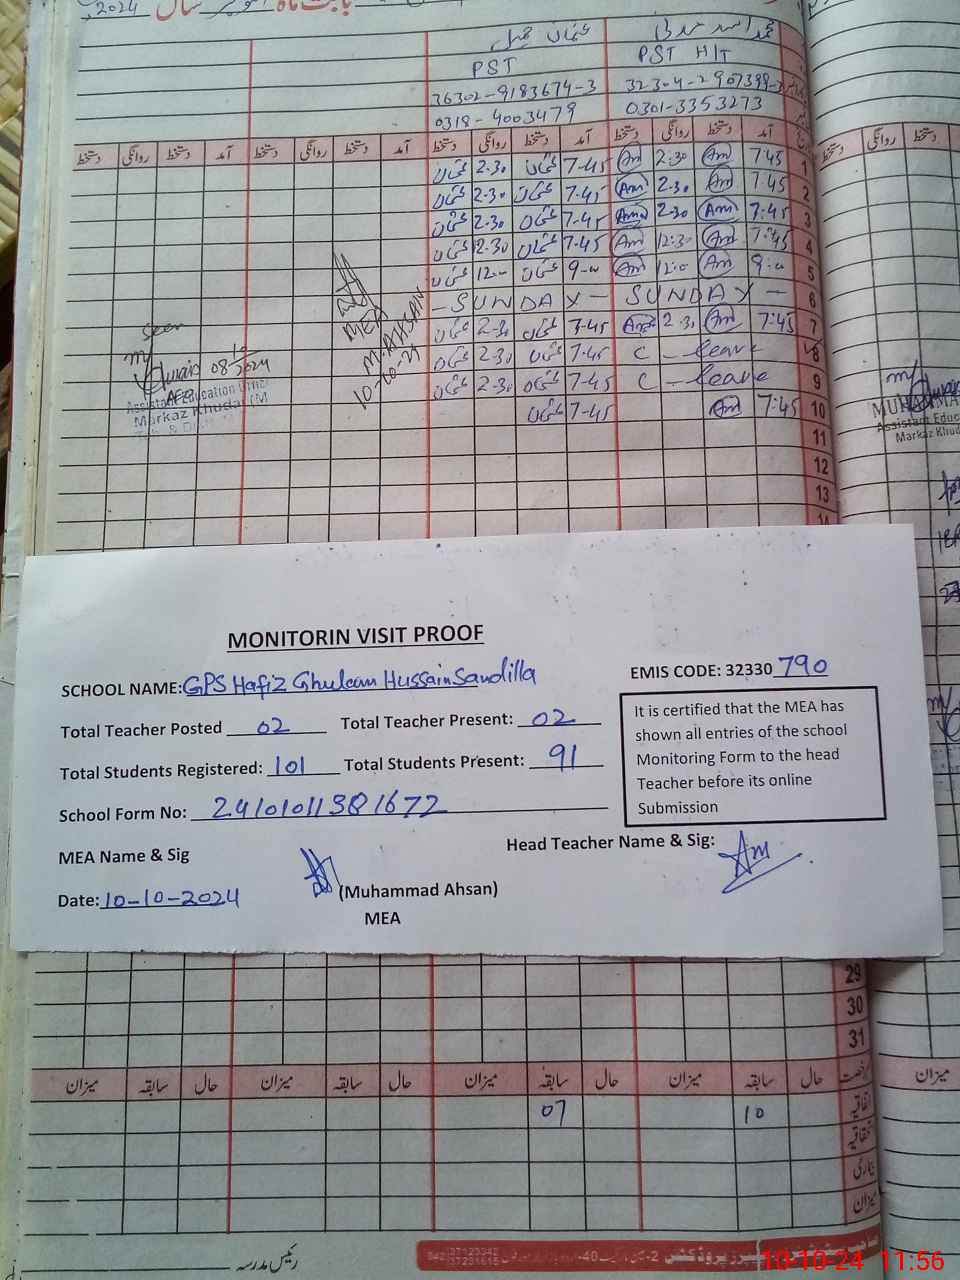 2024 سال اکتوبر بابت ماہ
عثمان جمیل
PST PST H/T
36302-9183674-3
0318-4003479 0301-3353273
دستخط روانگی دستخط آمد دستخط روانگی دستخط آمد دستخط روانگی دستخط آمد دستخط روانگی دستخط آمد
عثمان 2-30 عثمان 7-45 Am 2:30 Am 7:45 1
عثمان 2-30 عثمان 7-45 Am 2-30 Am 7:45 2
عثمان 2-30 عثمان 7-45 Am 2-30 Am 7:45 3
عثمان 12-30 عثمان 7-45 Am 12:30 Am 7:45 4
عثمان 12-00 عثمان 9-00 Am 12:0 Am 9:00 5
- SUNDAY - SUNDAY - 6
عثمان 2-30 عثمان 7-45 Am 2:30 Am 7:45 7
عثمان 2-30 عثمان 7-45 C - leave 8
عثمان 2-30 عثمان 7-45 C - leave 9
عثمان 7-45 Am 7:45 10
11
12
13
14
MEA
M.AHSAN
seen
08-10-2024
AEO
Assistant Education Officer
Markaz Khudai (M
Assistant Educa
Markaz Khud
MONITORIN VISIT PROOF
SCHOOL NAME: GPS Hafiz Ghulam Hussain Sandilla
EMIS CODE: 32330 790
Total Teacher Posted 02 Total Teacher Present: 02
Total Students Registered: 101 Total Students Present: 91
School Form No: 2410101138 1672
It is certified that the MEA has
shown all entries of the school
Monitoring Form to the head
Teacher before its online
Submission
MEA Name & Sig
Head Teacher Name & Sig: Am
Date: 10-10-2024
(Muhammad Ahsan)
MEA
29
30
31
میزان سابقہ حال میزان سابقہ حال میزان سابقہ حال میزان سابقہ حال رخصت
میزان
07 10 اتفاقیہ
بیماری
میزان
رئیس مدرسہ
10-10-24 11:56